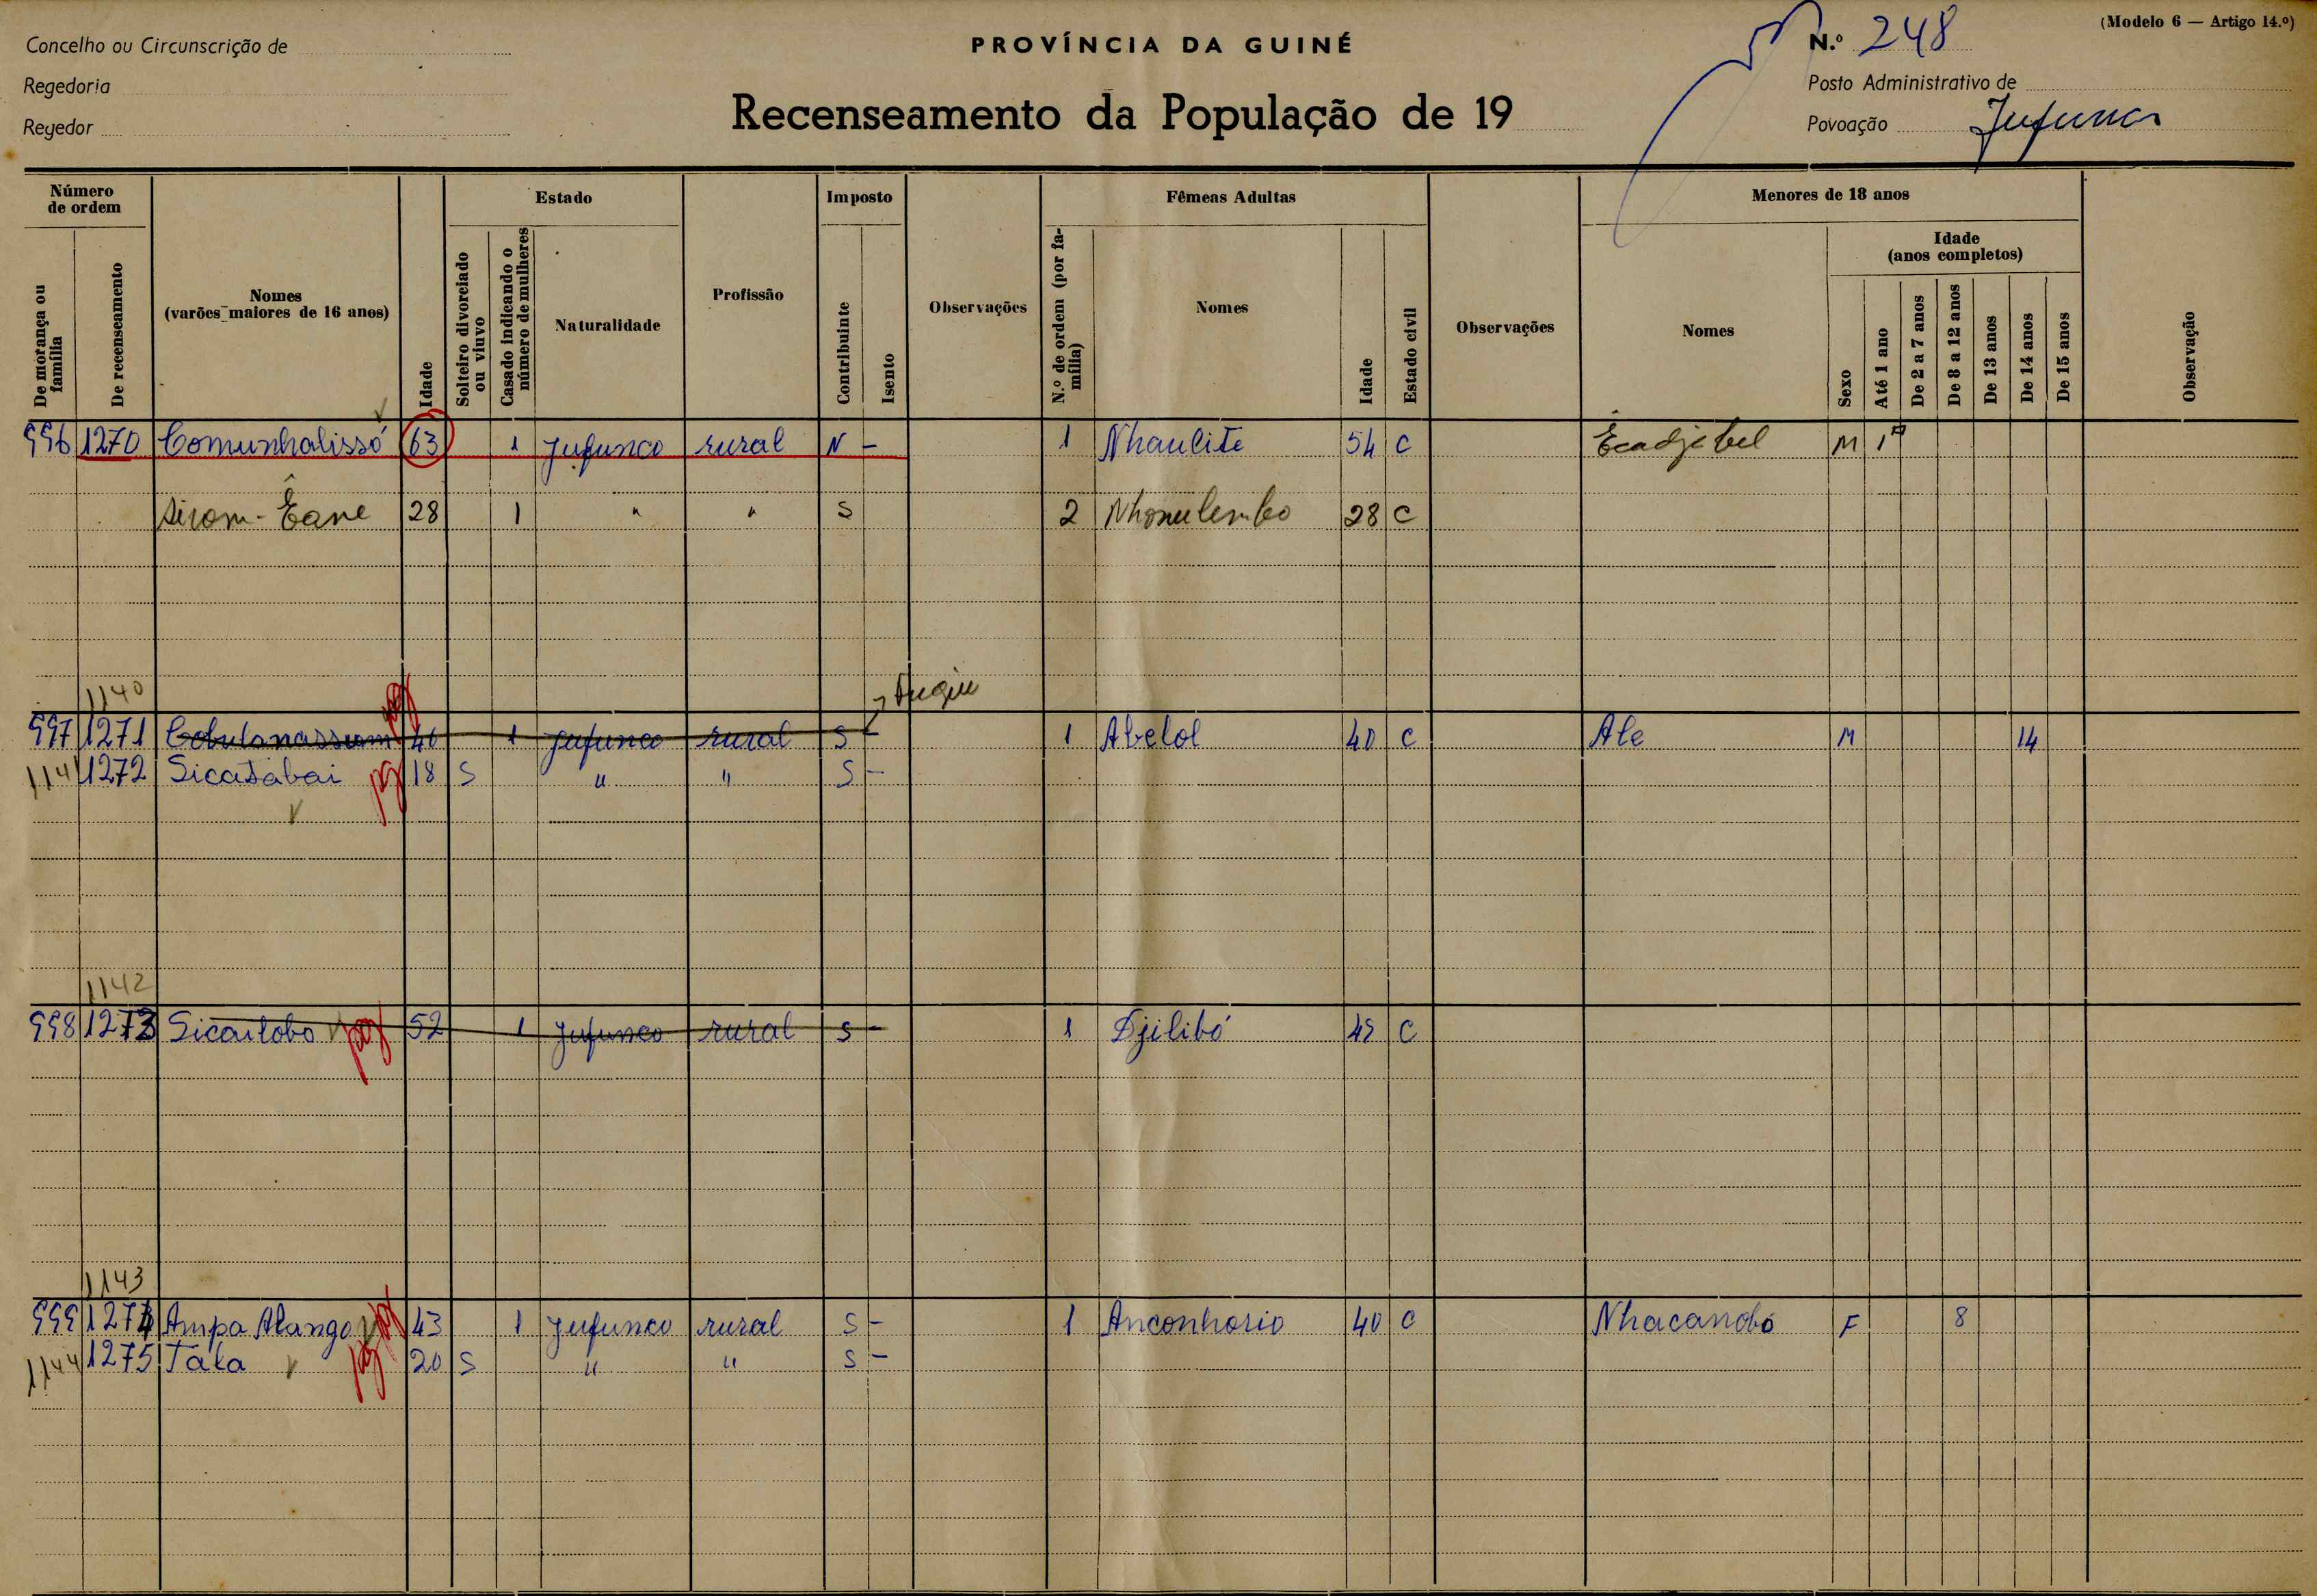 (Modelo 6 — Artigo 14.º)
Concelho ou Circunscrição de
PROVÍNCIA DA GUINÉ
N.º 248
Regedoria
Posto Administrativo de
Reyedor
Recenseamento da População de 19
Povoação Jufunco
Número de ordem
Estado
Imposto
Fêmeas Adultas
Menores de 18 anos
De morança ou família
De recenseamento
Nomes (varões maiores de 16 anos)
Idade
Solteiro divorciado ou viuvo
Casado indicando o número de mulheres
Naturalidade
Profissão
Contribuinte
Isento
Observações
N.º de ordem (por família)
Nomes
Idade
Estado civil
Observações
Nomes
Sexo
Idade (anos completos)
Até 1 ano
De 2 a 7 anos
De 8 a 12 anos
De 13 anos
De 14 anos
De 15 anos
Observação
996 1270 Comunhalissó 63 1 Jufunco rural N - 1 Nhaulite 54 C Ecadjebel M 1
Êane 28 1 " " S 2 Nhonulembo 28 C
1140
997 1271 Cobulonassum 46 1 Jufunco rural S - 1 Abelol 40 C Ale M 14
1141 1272 Sicatabai pg 18 S " " S -
1142
998 1273 Sicartobo pg 52 1 Jufunco rural S - 1 Djilibó 45 C
1143
999 1274 Ampa Alango pg 43 1 Jufunco rural S - 1 Anconhorio 40 C Nhacanobó F 8
1144 1275 Tata pg 20 S " " S -